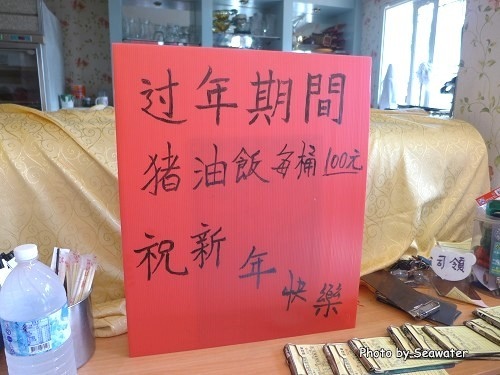 过年期間
猪油飯每桶100元
祝新年快樂
司領
Photo by Seawater